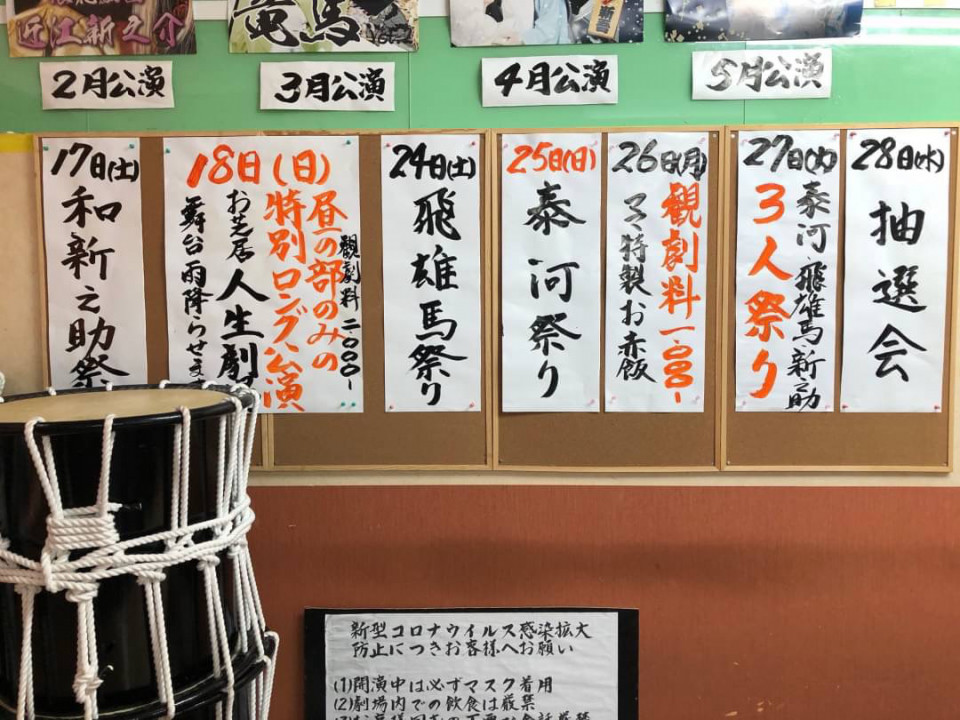 近江新之介
竜馬
2月公演
3月公演
4月公演
5月公演
17日(土)
和新之助祭
18日(日)
観劇料二、000-
昼の部のみの
特別ロング公演
お芝居 人生劇
舞台雨降らせま
24日(土)
飛雄馬祭り
25日(日)
泰河祭り
26日(月)
観劇料一、000-
ママ特製お赤飯
27日(火)
泰河・飛雄馬・新之助
3人祭り
28日(水)
抽選会
新型コロナウイルス感染拡大
防止につきお客様へお願い
(1)開演中は必ずマスク着用
(2)劇場内での飲食は厳禁